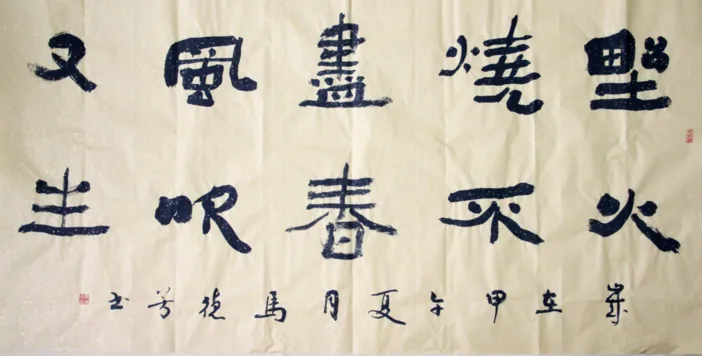 野火
燒不
盡春
風吹
又生
歲在甲午夏月馬德书